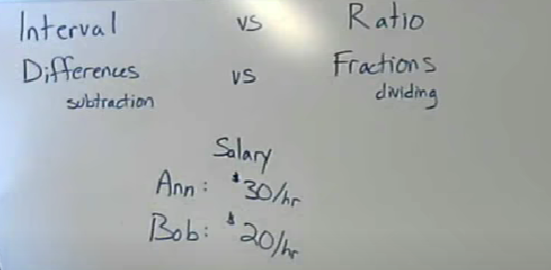 Interval vs Ratio
Differences vs Fractions
subtraction dividing
Salary
Ann: $30/hr
Bob: $20/hr